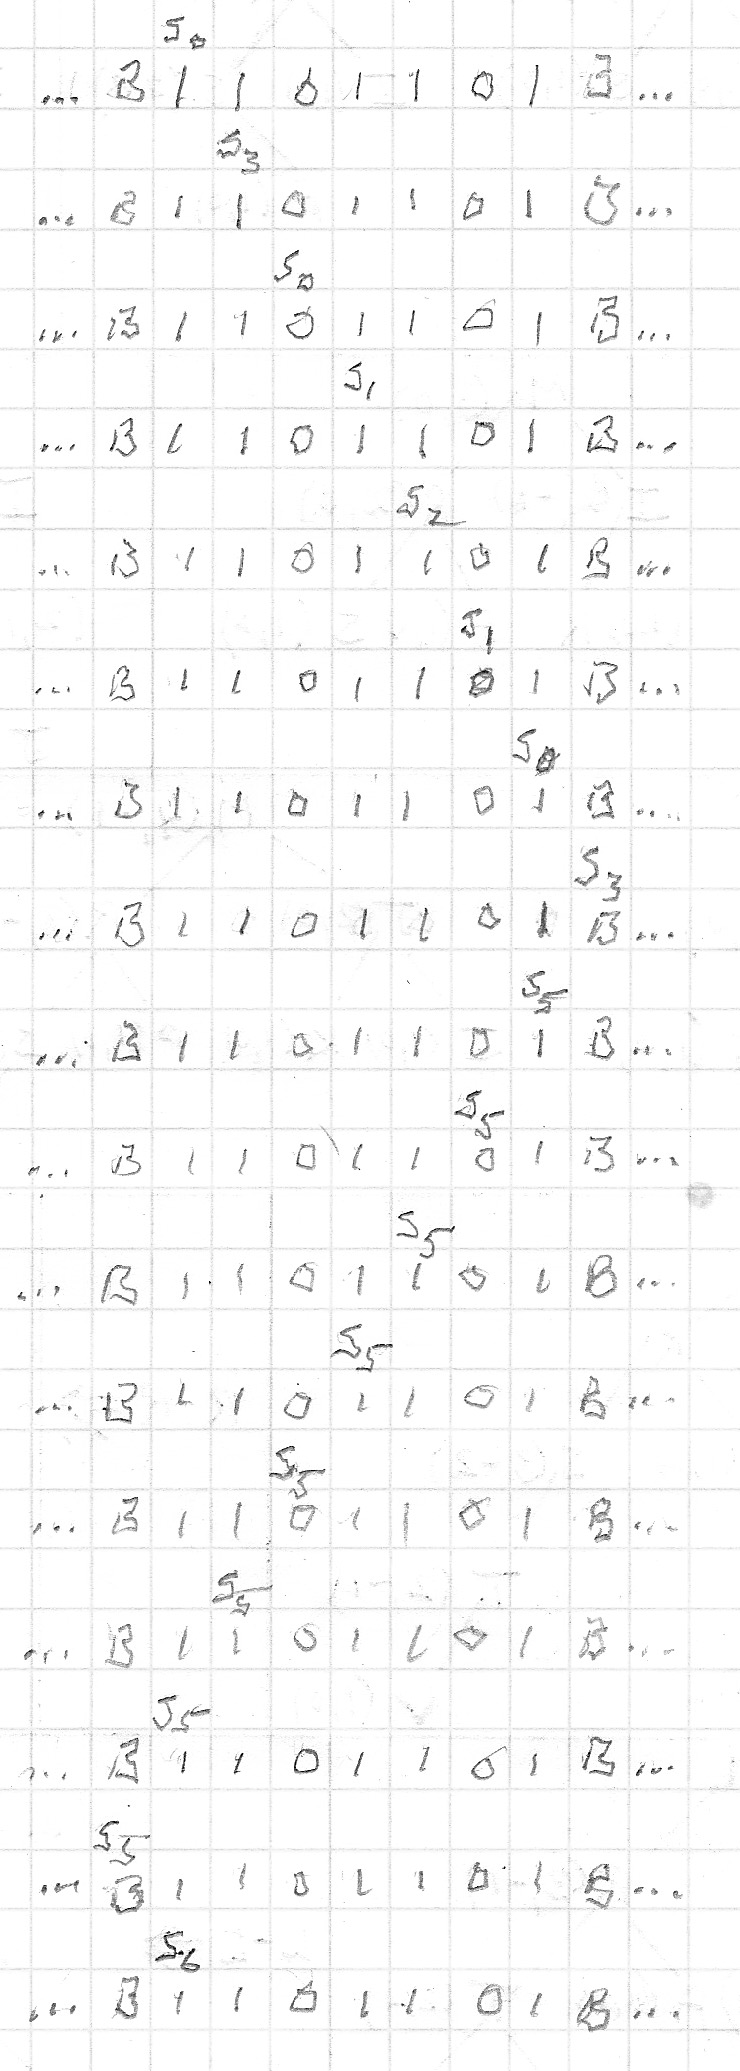 S0
... B 1 1 0 1 1 0 1 B ...
S3
... B 1 1 0 1 1 0 1 B ...
S0
... B 1 1 0 1 1 0 1 B ...
S1
... B 1 1 0 1 1 0 1 B ...
S2
... B 1 1 0 1 1 0 1 B ...
S1
... B 1 1 0 1 1 0 1 B ...
S0
... B 1 1 0 1 1 0 1 B ...
S3
... B 1 1 0 1 1 0 1 B ...
S5
... B 1 1 0 1 1 0 1 B ...
S5
... B 1 1 0 1 1 0 1 B ...
S5
... B 1 1 0 1 1 0 1 B ...
S5
... B 1 1 0 1 1 0 1 B ...
S5
... B 1 1 0 1 1 0 1 B ...
S5
... B 1 1 0 1 1 0 1 B ...
S5
... B 1 1 0 1 1 0 1 B ...
S5
... B 1 1 0 1 1 0 1 B ...
S6
... B 1 1 0 1 1 0 1 B ...